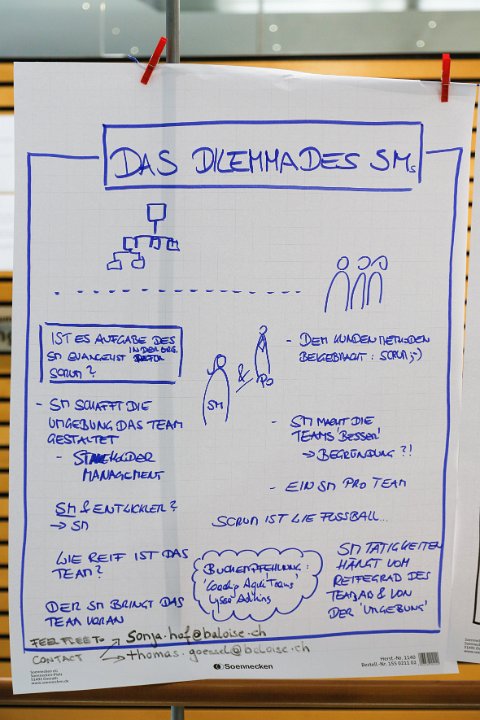 DAS DILEMMA DES SMs
IST ES AUFGABE DES
SM EVANGELIST IN DER ORG.
SCRUM?
SM
&
PO
- DEM KUNDEN METHODEN
BEIGEBRACHT: SCRUM ;-)
- SM SCHAFFT DIE
UMGEBUNG DAS TEAM
GESTALTET
- STAKEHOLDER
MANAGEMENT
- SM MACHT DIE
TEAMS 'BESSER'
→ BEGRÜNDUNG?!
- EIN SM PRO TEAM
SM & ENTWICKLER?
→ SM
SCRUM IST WIE FUSSBALL...
WIE REIF IST DAS
TEAM?
BUCHEMPFEHLUNG:
'Coaching Agile Teams'
Lyssa Adkins
SM TÄTIGKEITEN
HÄNGT VOM
REIFEGRAD DES
TEAM AB & VON
DER 'UMGEBUNG'
DER SM BRINGT DAS
TEAM VORAN
FEEL FREE TO
CONTACT
→ sonja.hof@baloise.ch
→ thomas.goessel@baloise.ch
Soennecken eG
Soennecken-Platz
51491 Overath
www.soennecken.de
Soennecken
Herst.-Nr. 1140
Bestell-Nr. 155 0211 02